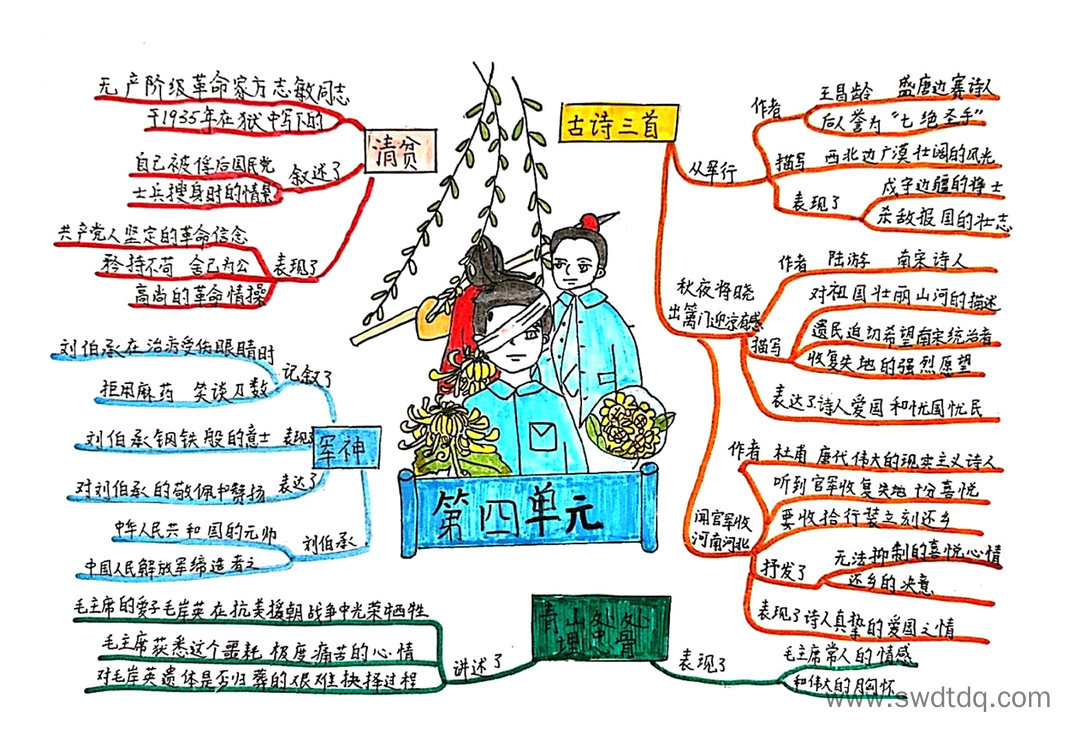 第四单元
古诗三首
从军行
作者
王昌龄 盛唐边塞诗人
后人誉为“七绝圣手”
描写
西北边广漠壮阔的风光
表现了
戍守边疆的将士
杀敌报国的壮志
秋夜将晓
出篱门迎凉有感
作者 陆游 南宋诗人
描写
对祖国壮丽山河的描述
遗民迫切希望南宋统治者
收复失地的强烈愿望
表达了诗人爱国和忧国忧民
闻官军收
河南河北
作者 杜甫 唐代伟大的现实主义诗人
听到官军收复失地十分喜悦
要收拾行装立刻还乡
抒发了
无法抑制的喜悦心情
还乡的决意
表现了诗人真挚的爱国之情
青山处处
埋忠骨
讲述了
毛主席的爱子毛岸英在抗美援朝战争中光荣牺牲
毛主席获悉这个噩耗 极度痛苦的心情
对毛岸英遗体是否归葬的艰难抉择过程
表现了
毛主席常人的情感
和伟大的胸怀
军神
记叙了
刘伯承在治疗受伤眼睛时
拒用麻药 笑谈刀数
表现了
刘伯承钢铁般的意士
表达了
对刘伯承的敬佩和赞扬
刘伯承
中华人民共和国的元帅
中国人民解放军缔造者之
清贫
无产阶级革命家方志敏同志
于1935年在狱中写下的
叙述了
自己被俘后国民党
士兵搜身时的情景
表现了
共产党人坚定的革命信念
矜持不苟 舍己为公
高尚的革命情操
www.swdtdq.com